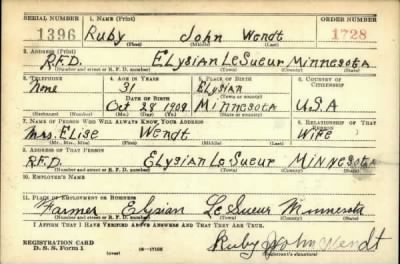 SERIAL NUMBER 1. NAME (Print) ORDER NUMBER
1396 Ruby John Wendt 1728
(First) (Middle) (Last)
2. ADDRESS (Print)
R.F.D. Elysian LeSueur Minnesota
(Number and street or R. F. D. number) (Town) (County) (State)
3. TELEPHONE 4. AGE IN YEARS 5. PLACE OF BIRTH 6. COUNTRY OF CITIZENSHIP
None 31 Elysian
DATE OF BIRTH (Town or county)
Oct 28 1909 Minnesota U.S.A
(Mo.) (Day) (Yr.) (State or country)
7. NAME OF PERSON WHO WILL ALWAYS KNOW YOUR ADDRESS 8. RELATIONSHIP OF THAT PERSON
Mrs. Elise Wendt Wife
(Mr., Mrs., Miss) (First) (Middle) (Last)
9. ADDRESS OF THAT PERSON
R.F.D. Elysian LeSueur Minnesota
(Number and street or R. F. D. number) (Town) (County) (State)
10. EMPLOYER'S NAME
11. PLACE OF EMPLOYMENT OR BUSINESS
Farmer Elysian LeSueur Minnesota
(Number and street or R. F. D. number) (Town) (County) (State)
I AFFIRM THAT I HAVE VERIFIED ABOVE ANSWERS AND THAT THEY ARE TRUE.
REGISTRATION CARD
D. S. S. Form 1 (over) Ruby John Wendt
(Registrant's signature)